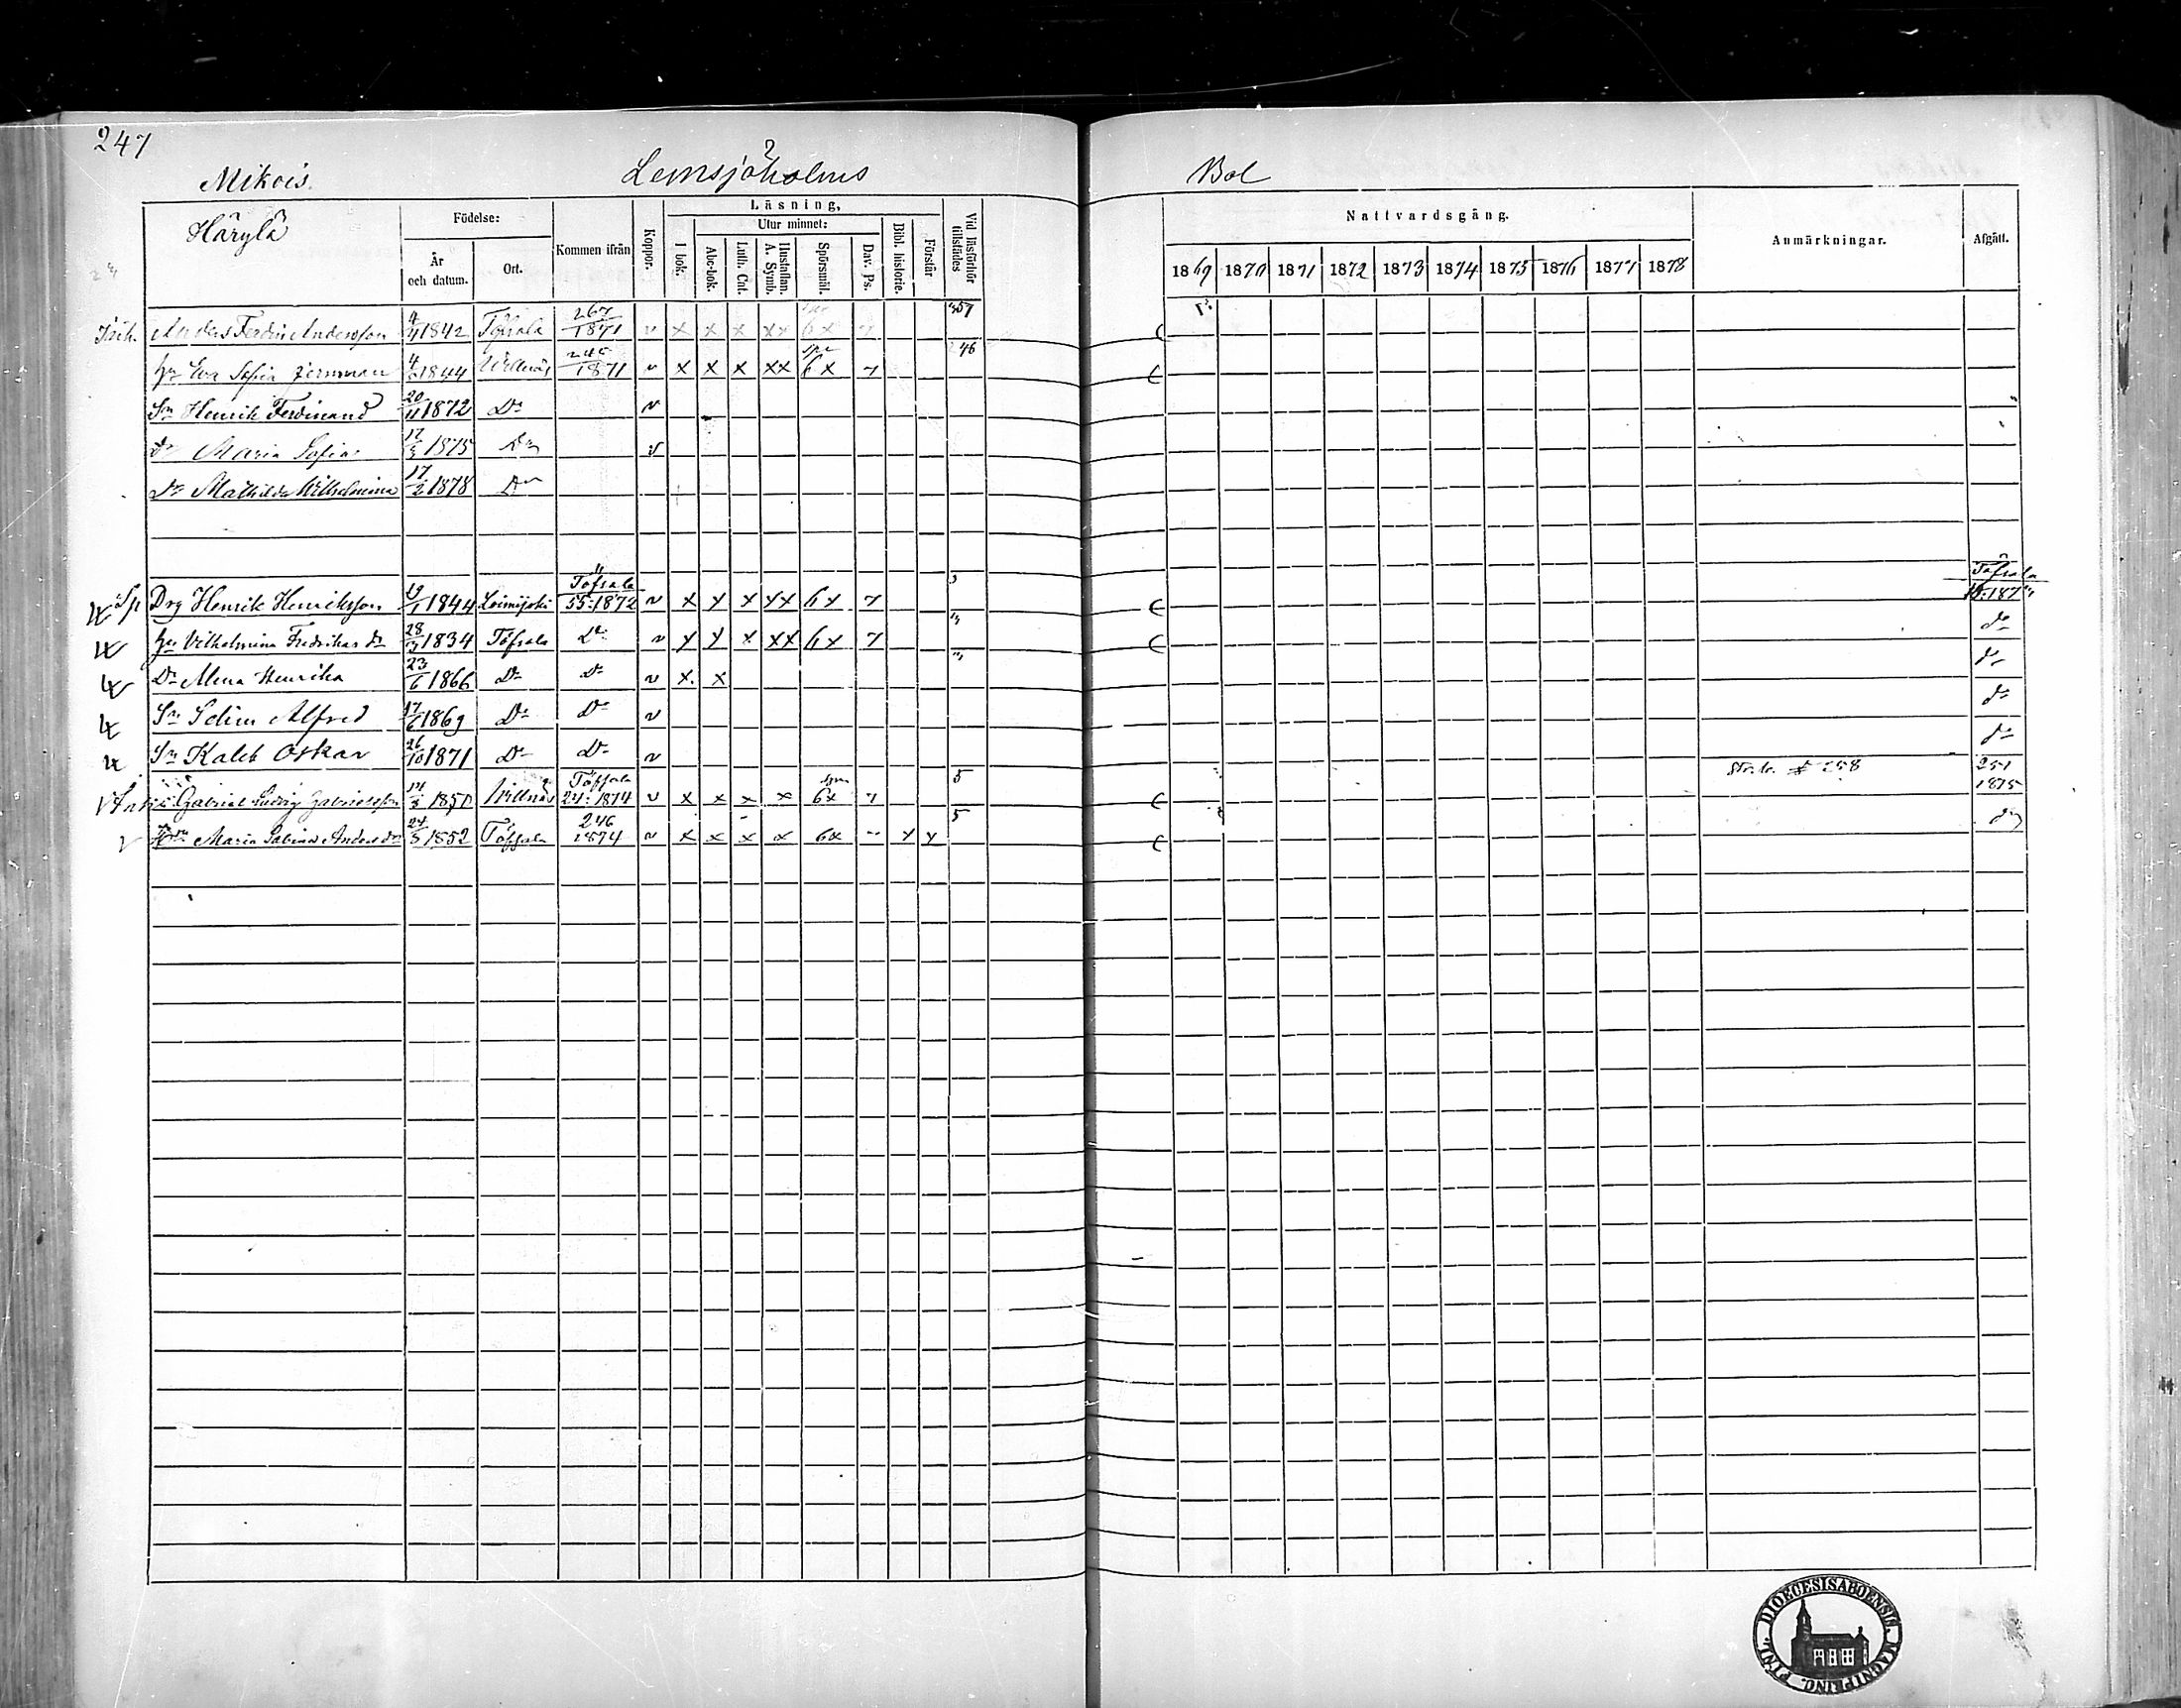 247
Mikois. Lemsjöholms Bol
Häryla
Födelse:
År och datum.
Ort.
Kommen ifrån
Koppor.
Läsning,
I bok.
Utur minnet:
Abc-bok.
Luth. Cat.
Hustaflan. A. Symb.
Spörsmål.
Dav. Ps.
Bibl. historie.
Förstår
Vid läsförhör tillstädes
Nattvardsgång.
1869 1870 1871 1872 1873 1874 1875 1876 1877 1878
Anmärkningar.
Afgått.
Anders Ferdin Andersson 4/4 1842 Töfsala 267/1871 v x x x xx 6x 7 57
Hu Eva Sofia 1844 Willnäs 1871 v x x x xx 6x 7 46
Sn Henrik Ferdinand 20/11 1872 Do v
Dr Maria Sofia 17/3 1875 Do v
Dr Mathilda Wilhelmina 17/2 1878 Do
Drg Henrik Henriksson 1844 Loimijoki Töfsala 55:1872 v x x x xx 6x 7 Töfsala
Hu Vilhelmina Fredrikas dr 28/7 1834 Töfsala Do v x x x xx 6x 7 do
Dr Alma Henrika 23/6 1866 Do Do v x x do
Sn Selim Alfred 17/6 1869 Do Do v do
Sn Kaleb Oskar 26/10 1871 Do Do v do
Gabriel Ludvig Gabrielsson 14/3 1850 Willnäs Töfsala 24:1874 v x x x x 6x 7 5 258 251 1875
Maria Sabina Anders dr 24/3 1852 Töfsala 246 1874 v x x x x 6x x x 5 do
FINL. DIOECESIS ABOENSIS MAGNI PRINC.